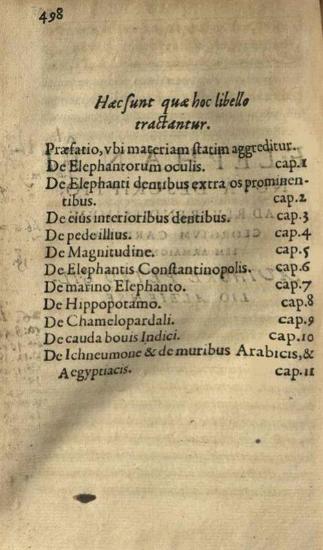 498
Hæc sunt quæ hoc libello
tractantur.
Præfatio, vbi materiam statim aggreditur.
De Elephantorum oculis. cap.1
De Elephanti dentibus extra os prominen-
tibus. cap.2
De eius interioribus dentibus. cap.3
De pede illius. cap.4
De Magnitudine. cap.5
De Elephantis Constantinopolis. cap.6
De marino Elephanto. cap.7
De Hippopotamo. cap.8
De Chamelopardali. cap.9
De cauda bouis Indici. cap.10
De Ichneumone & de muribus Arabicis, &
Aegyptiacis. cap.11